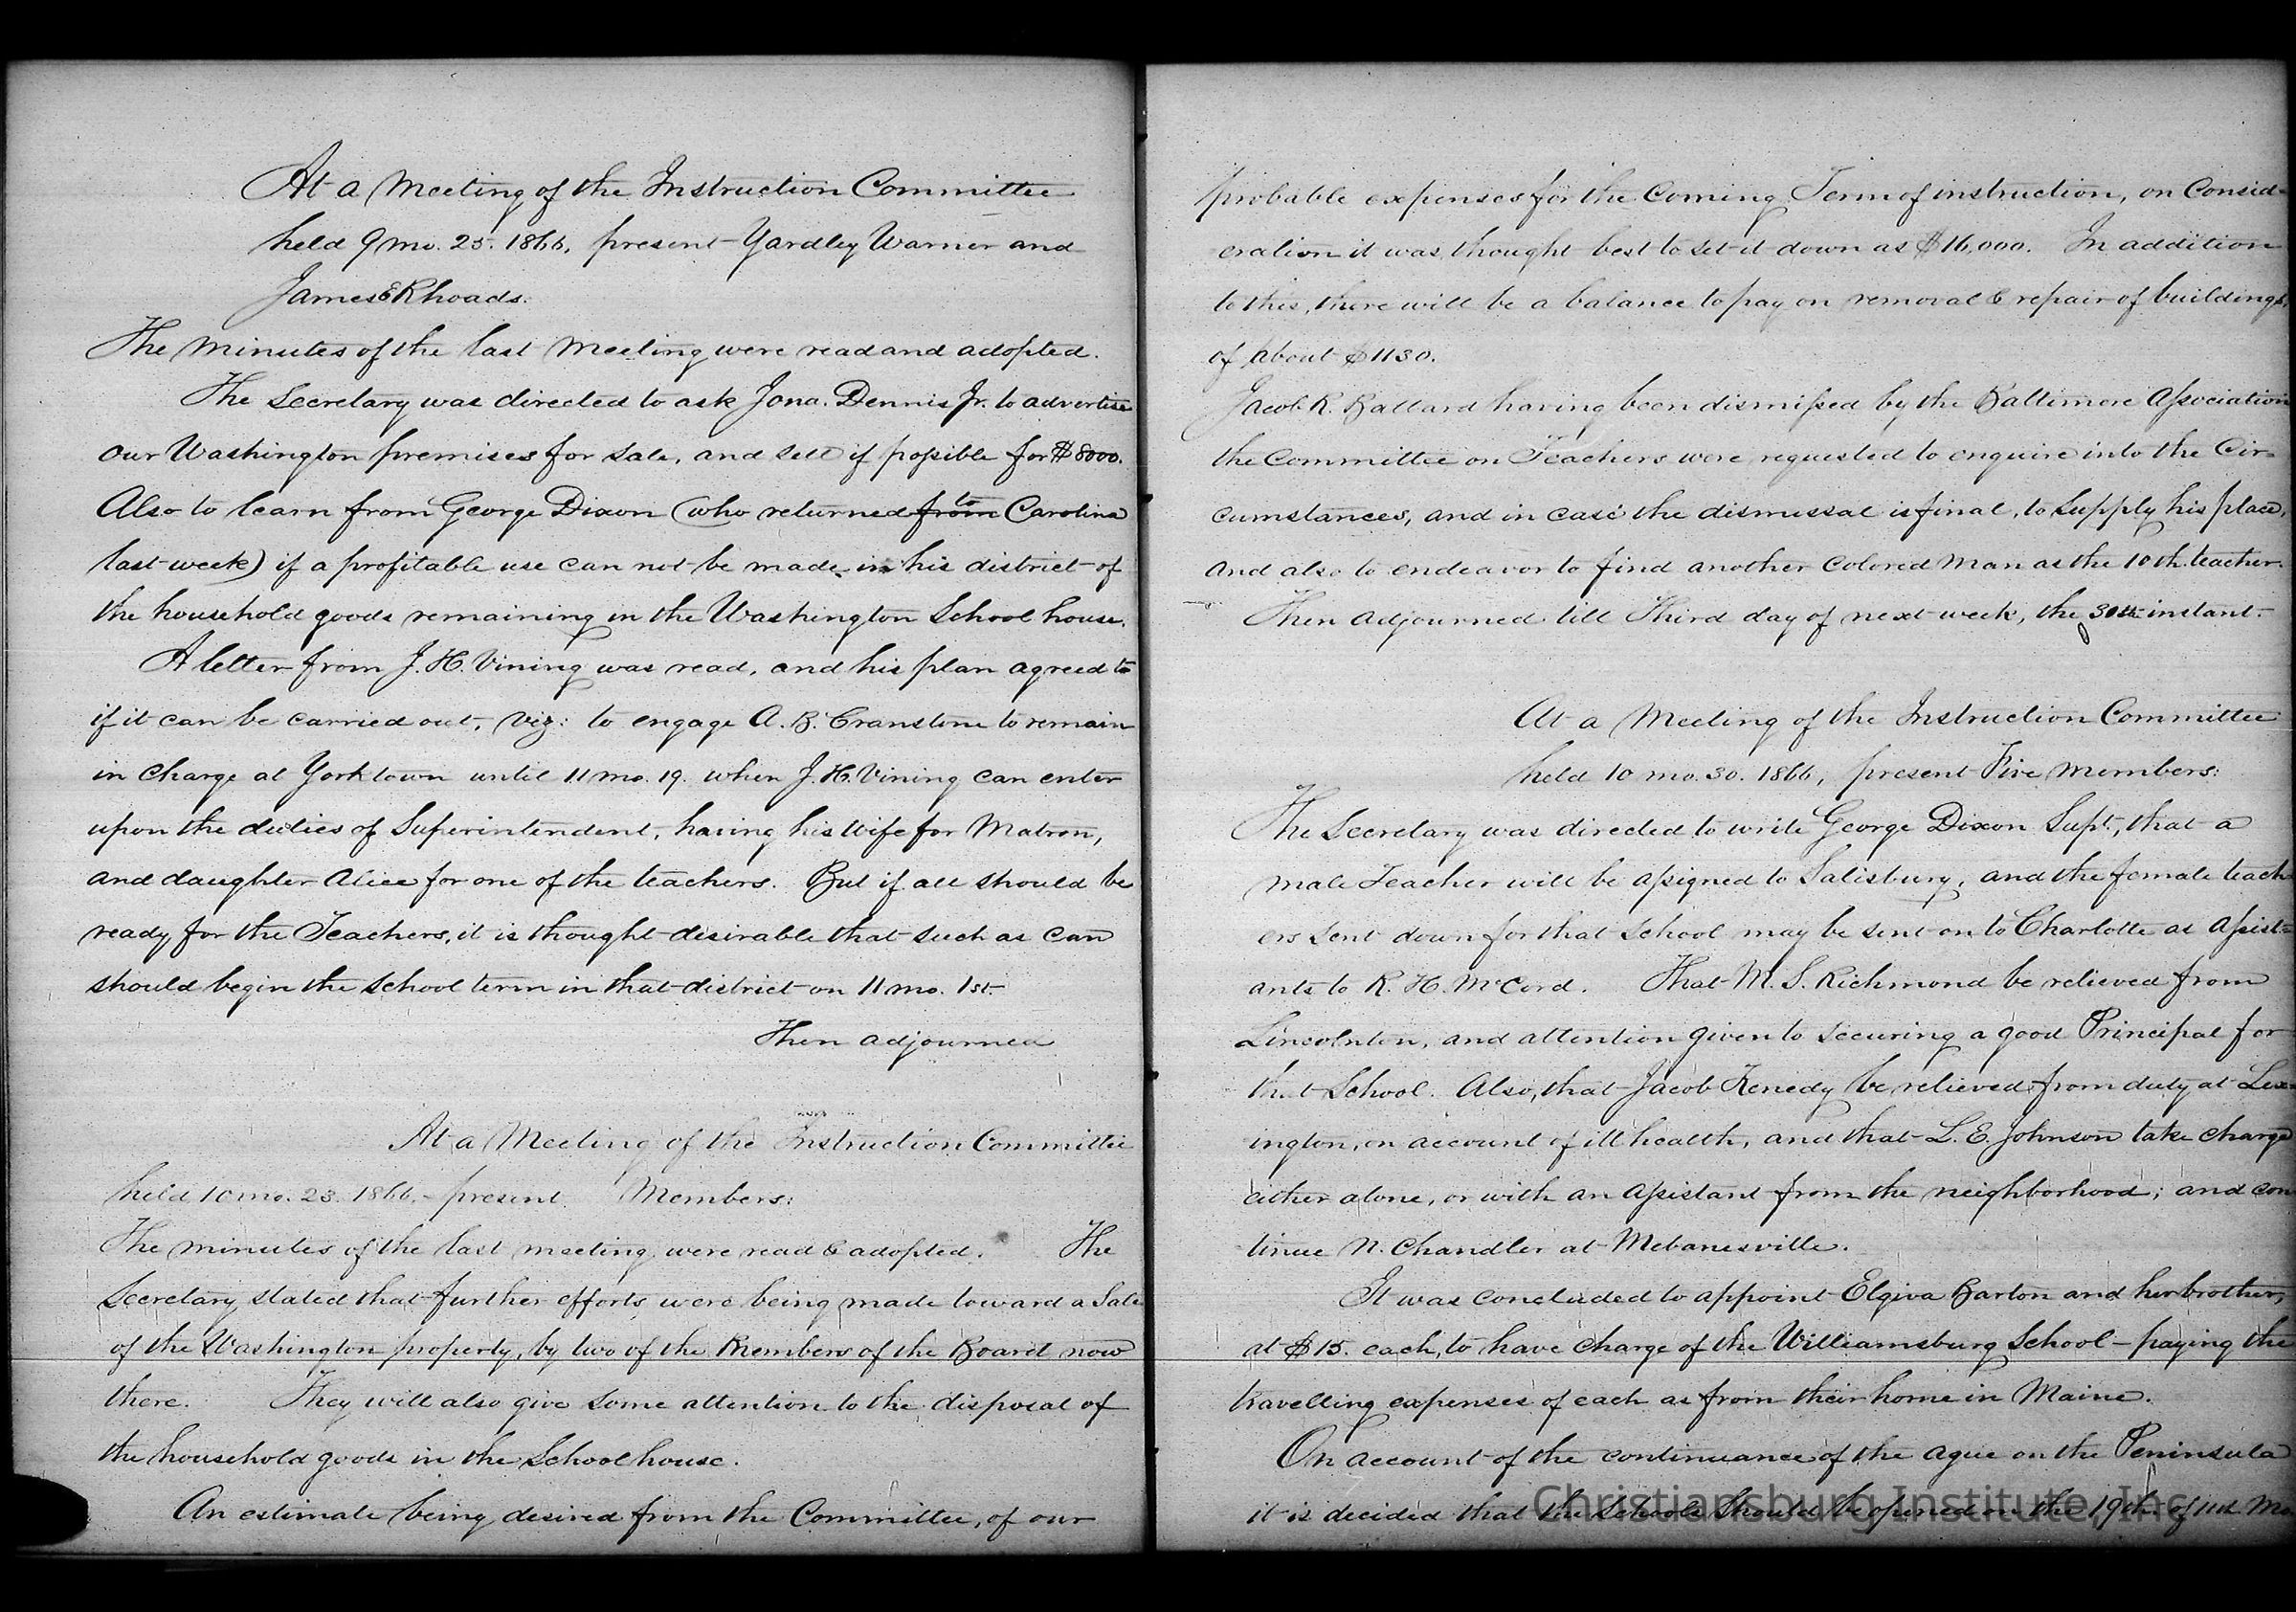 At a Meeting of the Instruction Committee
held 9 mo. 25. 1866, present Yardley Warner and
James E Rhoads.
The minutes of the last meeting were read and adopted.
The Secretary was directed to ask Jona. Dennis Jr. to advertise
our Washington premises for sale, and sell if possible for $8000.
Also to learn from George Dixon (who returned from to Carolina
last week) if a profitable use can not be made in his district of
the household goods remaining in the Washington School house.
A letter from J. H. Vining was read, and his plan agreed to
if it can be carried out, viz: to engage A. B. Cranstone to remain
in charge at Yorktown until 11 mo. 19. when J. H. Vining can enter
upon the duties of Superintendent, having his wife for Matron,
and daughter Alice for one of the teachers. But if all should be
ready for the Teachers, it is thought desirable that such as can
should begin the school term in that district on 11 mo. 1st.
Then adjourned
At a Meeting of the Instruction Committee
held 10 mo. 23. 1866, - present Members:
The minutes of the last meeting were read & adopted. The
Secretary stated that further efforts were being made toward a Sale
of the Washington property, by two of the Members of the Board now
there. They will also give some attention to the disposal of
the household goods in the School house.
An estimate being desired from the Committee, of our
probable expenses for the Coming Term of instruction, on Consid-
eration it was thought best to set it down as $16,000. In addition
to this, there will be a balance to pay on removal & repair of buildings,
of about $1130.
Jacob R. Ballard having been dismissed by the Baltimore Association
the Committee on Teachers were requested to enquire into the Cir-
cumstances, and in case the dismissal is final, to supply his place,
and also to endeavor to find another colored man as the 10th. teacher.
Then adjourned till Third day of next week, the 30th instant.
At a Meeting of the Instruction Committee
held 10 mo. 30. 1866, present Five members:
The Secretary was directed to write George Dixon Supt., that a
male Teacher will be assigned to Salisbury, and the female teach-
ers sent down for that School may be sent on to Charlotte as Assist-
ants to R. H. McCord. That M. S. Richmond be relieved from
Lincolnton, and attention given to securing a good Principal for
that School. Also, that Jacob Kenedy be relieved from duty at Lex-
ington, on account of ill health, and that L. E. Johnson take charge
either alone, or with an assistant from the neighborhood; and con
tinue N. Chandler at Mebanesville.
It was concluded to appoint Elgiva Barton and her brother,
at $15. each, to have charge of the Williamsburg School - paying the
travelling expenses of each as from their home in Maine.
On account of the continuance of the ague on the Peninsula
it is decided that the Schools should be opened on the 19th of 11th Mo.
Christiansburg Institute, Inc.